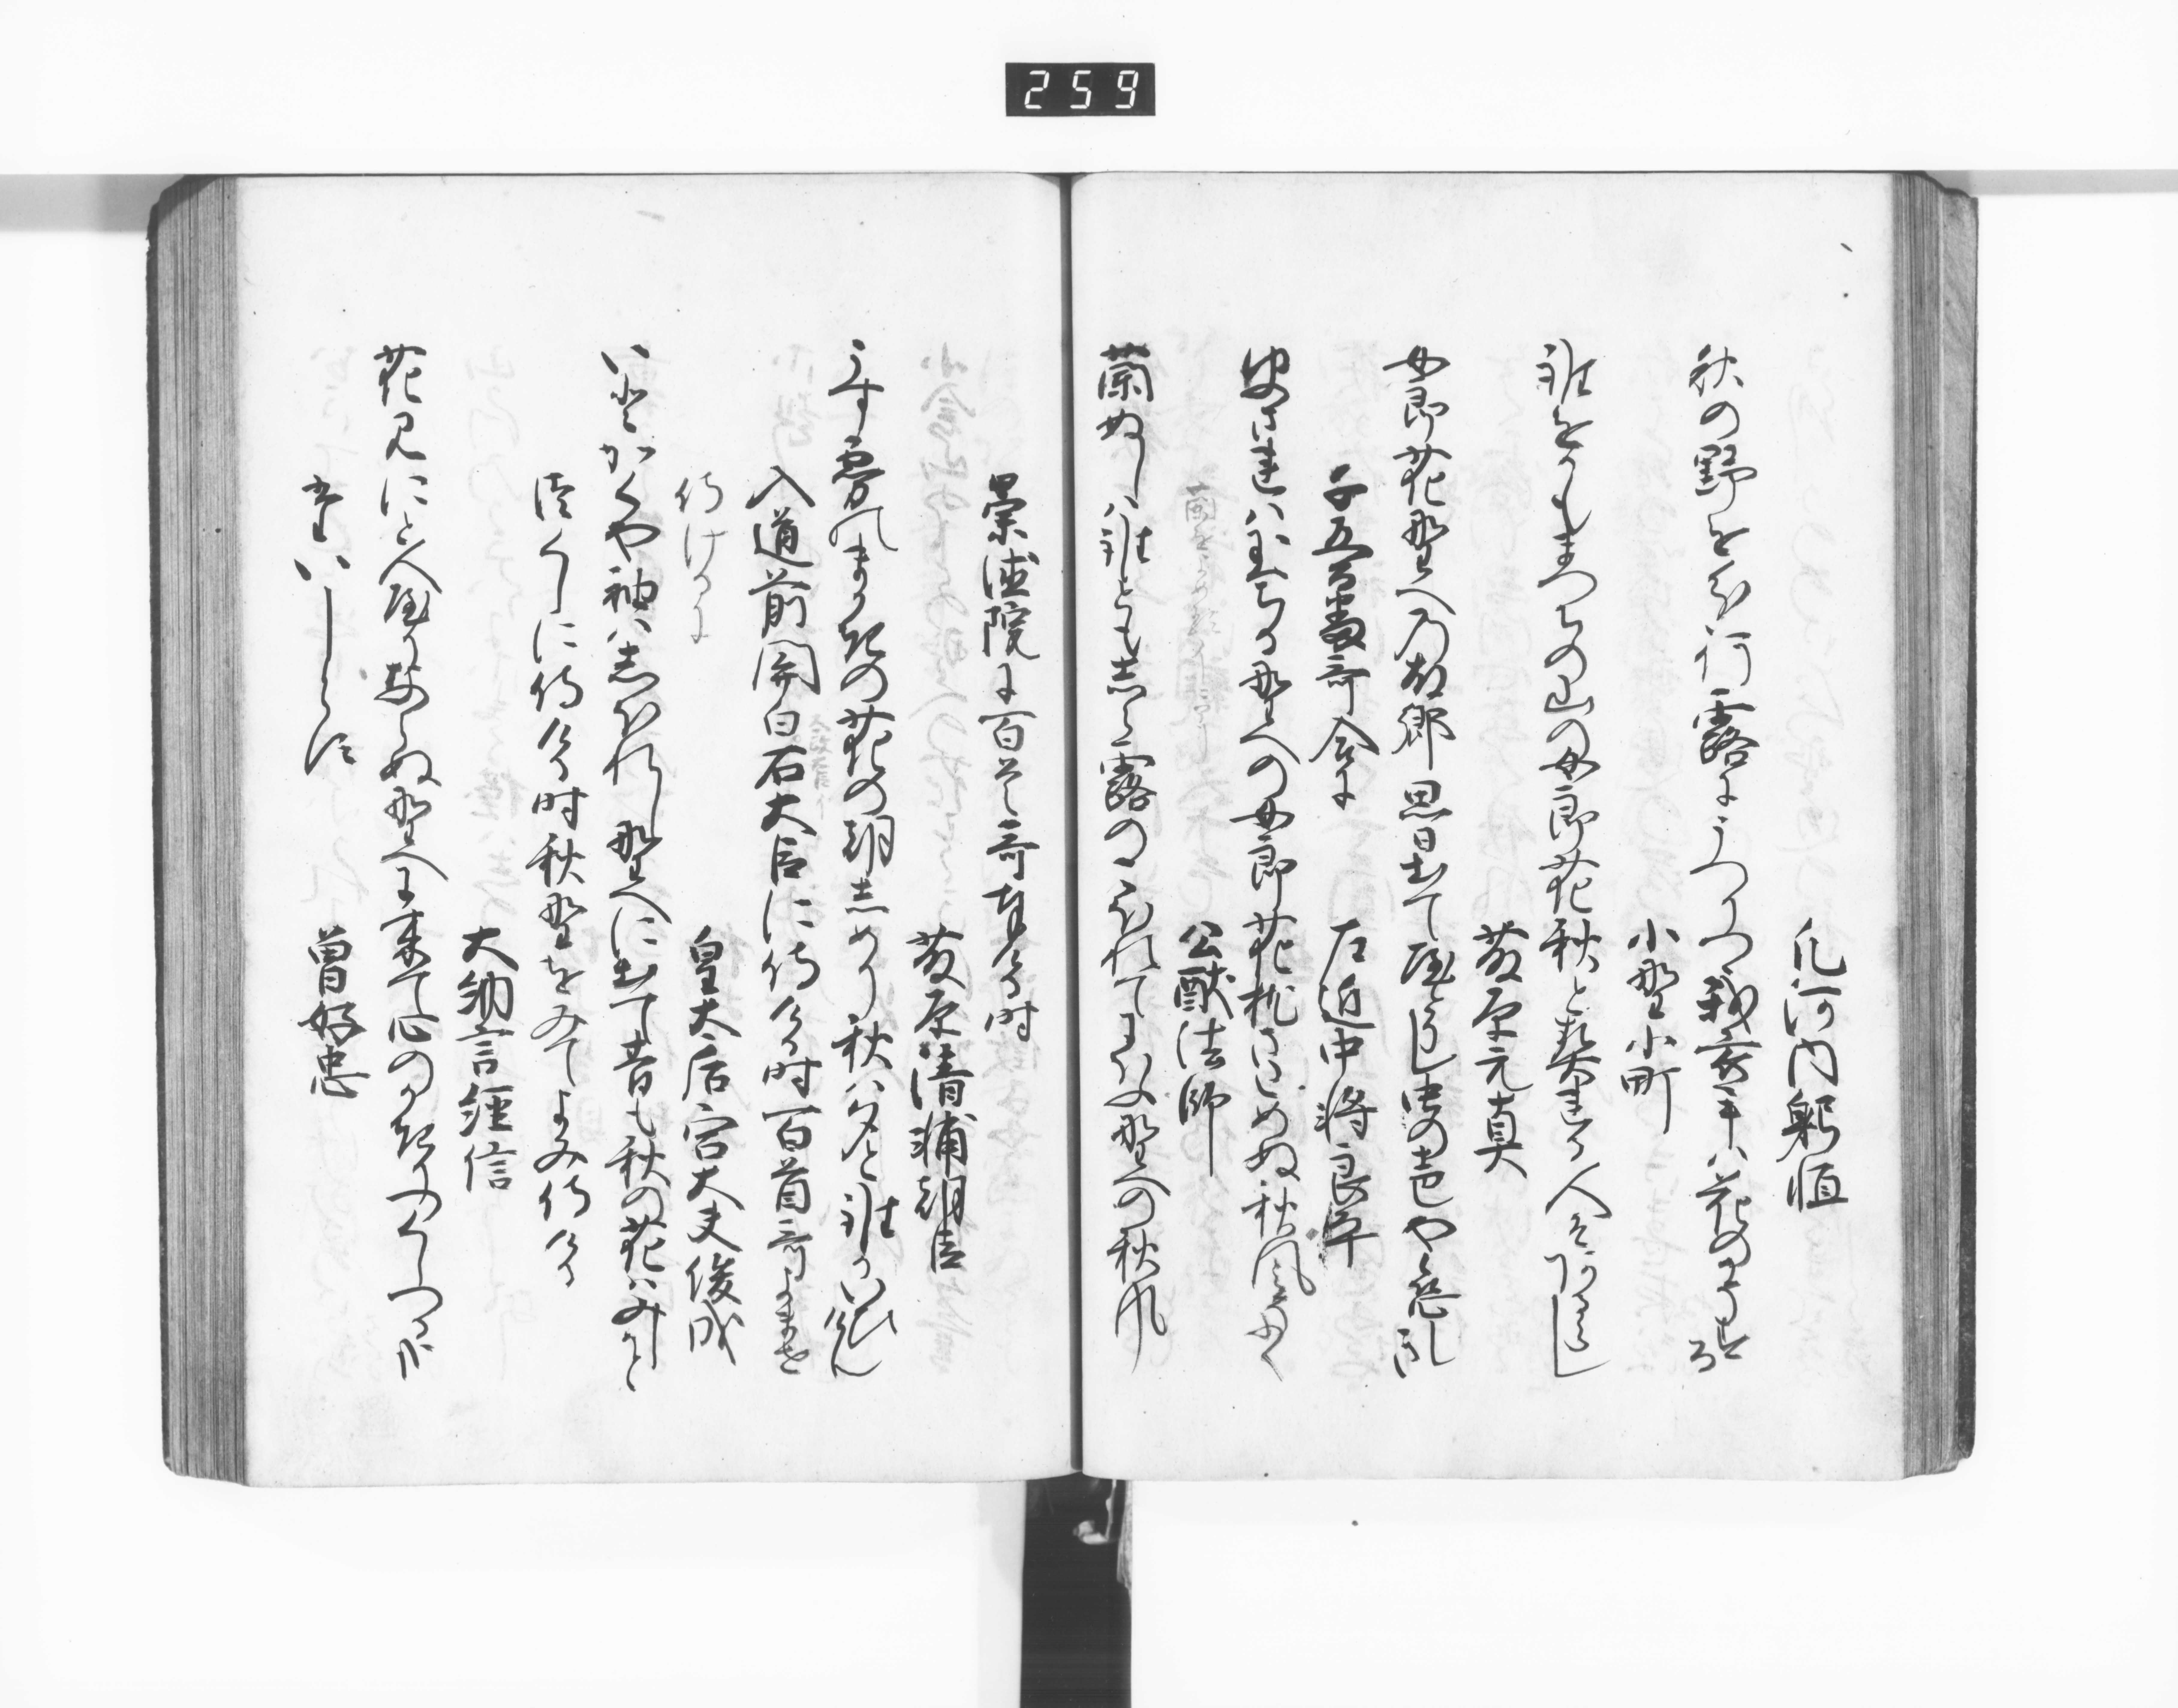 259
凡河内躬恒
秋の野をわけ行露にうつりつゝ我衣手は花のかそする
小野小町
誰をかもまつちの山の女郎花秋と契れる人そあるらし
藤原元真
女郎花野への故郷思出て宿りし虫の声や恋しき
千五百番哥合に
左近中将良平
夕されは玉ちる野への女郎花枕さためぬ秋風そふく
公猷法師
蘭ぬしは誰ともしら露のこほれてにほふ野への秋風
崇徳院に百首哥奉ける時
藤原清輔朝臣
うす霧のまかきの花の朝しめり秋は夕と誰かいひけん
入道前関白右大臣に侍ける時百首哥よませ
侍けるに
皇太后宮大夫俊成
いとかくや袖はしほれし野へに出て昔も秋の花はみしかと
つくしに侍ける時秋野をみてよみ侍ける
大納言経信
花見にと人やりならぬ野へに来て心のかきりつくしつるかな
題しらす
曽祢好忠